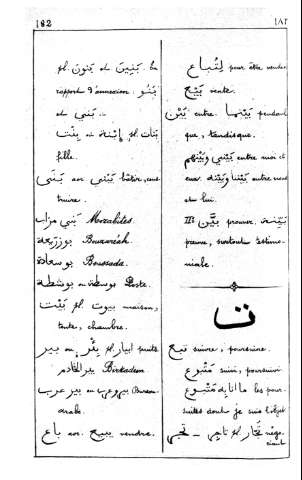 182
١٨٢
pl. بَنُون et بَنِين. En
rapport d'annexion: بَنُو
et بَنِي. —
بَنَات pl. اِبْنَة ou بِنْت
fille.
بَنَى aor. يَبْنِي bâtir, cons
truire.
بَنِي مزاب Mozabites.
بوزريعة Bouzaréah.
بوسعادة Boussada.
بوسطة ou بوشطة Poste.
بَيْت pl. بيوت maison,
tente, chambre.
بير ou بِئْر pl. ابيار puits
بير الخادم Birkadem
بير عرب ou بيروعرب Bureau
arabe.
باع aor. يبيع vendre.
لِتُبَاع pour être vendu
بَيْع vente.
بَيْن entre. بَيْنَمَا pendant
que, tandisque.
بَيْنِي وَبَيْنَهُم entre moi et
eux بَيْنَنَا وَبَيْنَه entre nous
et lui.
بَيَّن IIe prouver. بَيِّنَة
preuve, surtout testimo-
niale.
ت
تبع suivre, poursuivre.
مَتْبُوع suivi, poursuivi
ما انا به مَتْبُوع les pour-
suites dont je suis l'objet
تجر — تاجر pl. تُجَّار négo-
ciant